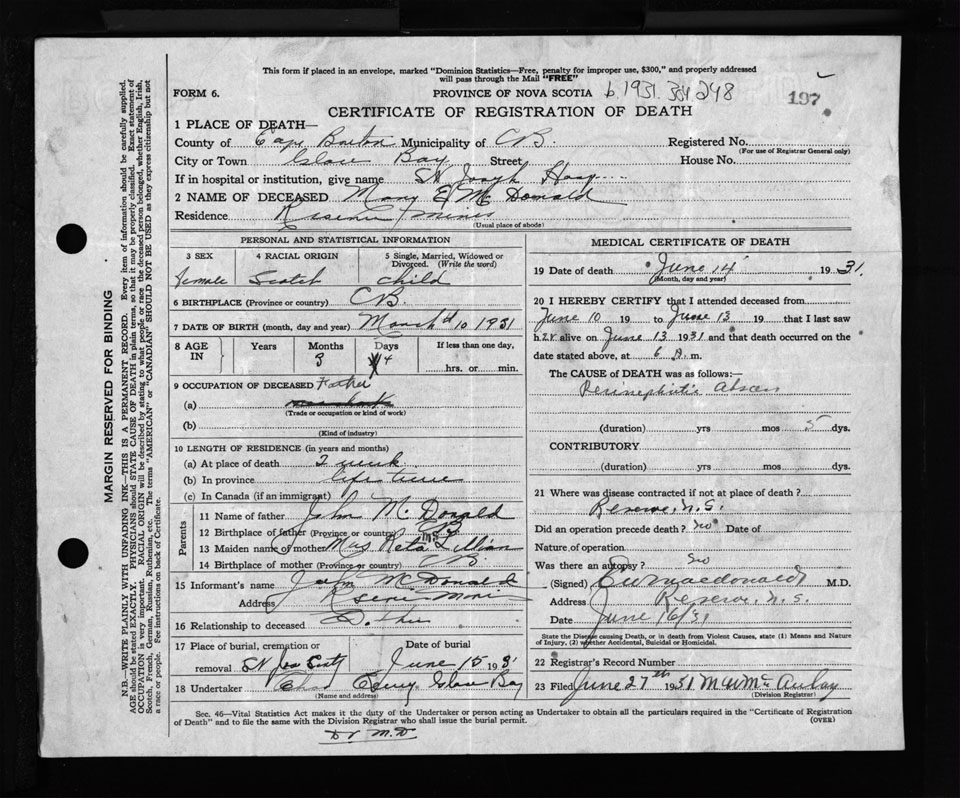 This form if placed in an envelope, marked "Dominion Statistics—Free, penalty for improper use, $300," and properly addressed
will pass through the Mail "FREE"
FORM 6. PROVINCE OF NOVA SCOTIA b 1931 334248 197
CERTIFICATE OF REGISTRATION OF DEATH
1 PLACE OF DEATH—
County of Cape Breton Municipality of CB. Registered No.
(For use of Registrar General only)
City or Town Glace Bay Street House No.
If in hospital or institution, give name St Joseph Hosp
2 NAME OF DECEASED Mary E McDonald
Residence Reserve Mines
(Usual place of abode)
PERSONAL AND STATISTICAL INFORMATION
3 SEX 4 RACIAL ORIGIN 5 Single, Married, Widowed or
Divorced. (Write the word)
female Scotch child
6 BIRTHPLACE (Province or country) CB.
7 DATE OF BIRTH (month, day and year) March 10 1931
8 AGE IN Years Months Days If less than one day,
3 4
hrs. or min.
9 OCCUPATION OF DECEASED Father
(a)
(Trade or occupation or kind of work)
(b)
(Kind of industry)
10 LENGTH OF RESIDENCE (in years and months)
(a) At place of death 2 week
(b) In province life time
(c) In Canada (if an immigrant)
Parents
11 Name of father John McDonald
12 Birthplace of father (Province or country) CB
13 Maiden name of mother Mrs Reta Lillian
14 Birthplace of mother (Province or country) CB
15 Informant's name John McDonald
Address Reserve Mines
16 Relationship to deceased
17 Place of burial, cremation or Date of burial
removal St June 15 1931
18 Undertaker Glace Bay
(Name and address)
MEDICAL CERTIFICATE OF DEATH
19 Date of death June 14 1931.
(Month, day and year)
20 I HEREBY CERTIFY that I attended deceased from
June 10 19 to June 13 19 that I last saw
her alive on June 13 1931 and that death occurred on the
date stated above, at 6 A. m.
The CAUSE of DEATH was as follows:—
Perinephritic Abscess
(duration) yrs mos 5 dys.
CONTRIBUTORY
(duration) yrs mos dys.
21 Where was disease contracted if not at place of death?
Reserve, N.S.
Did an operation precede death? no Date of
Nature of operation
Was there an autopsy? no
(Signed) Macdonald M.D.
Address Reserve, N.S.
Date June 16/31
State the Disease causing Death, or in death from Violent Causes, state (1) Means and Nature
of Injury, (2) whether Accidental, Suicidal or Homicidal.
22 Registrar's Record Number
23 Filed June 27th 1931 McAulay
(Division Registrar)
Sec. 46—Vital Statistics Act makes it the duty of the Undertaker or person acting as Undertaker to obtain all the particulars required in the "Certificate of Registration
of Death" and to file the same with the Division Registrar who shall issue the burial permit. (OVER)
MARGIN RESERVED FOR BINDING
N.B.—WRITE PLAINLY WITH UNFADING INK—THIS IS A PERMANENT RECORD. Every item of information should be carefully supplied.
AGE should be stated EXACTLY. PHYSICIANS should STATE CAUSE OF DEATH in plain terms, so that it may be properly classified. Exact statement of
OCCUPATION is very important. RACIAL ORIGIN will be described by stating to what people or race the deceased person belonged, whether English, Irish,
Scotch, French, German, Russian, Ruthenian, etc. The terms "AMERICAN" or "CANADIAN" SHOULD NOT BE USED as they express citizenship but not
a race or people. See instructions on back of Certificate.